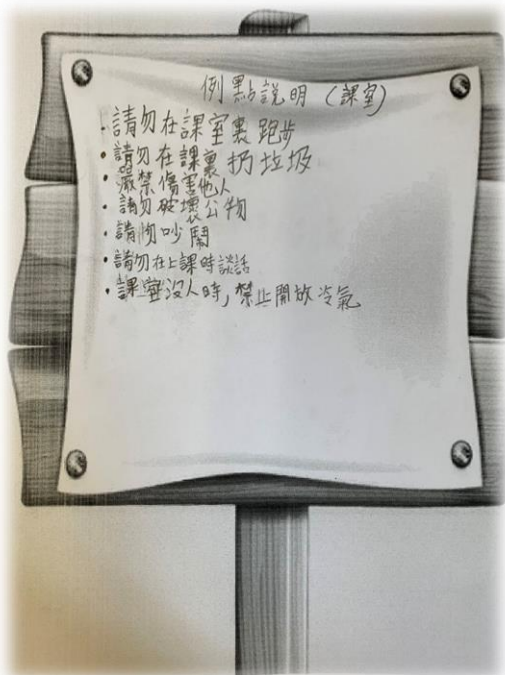 例點說明（課室）
• 請勿在課室裏跑步
• 請勿在課裏扔垃圾
• 嚴禁傷害他人
• 請勿破壞公物
• 請惂吵鬧
• 請勿在上課時談話
• 課室沒人時，禁止開放冷氣